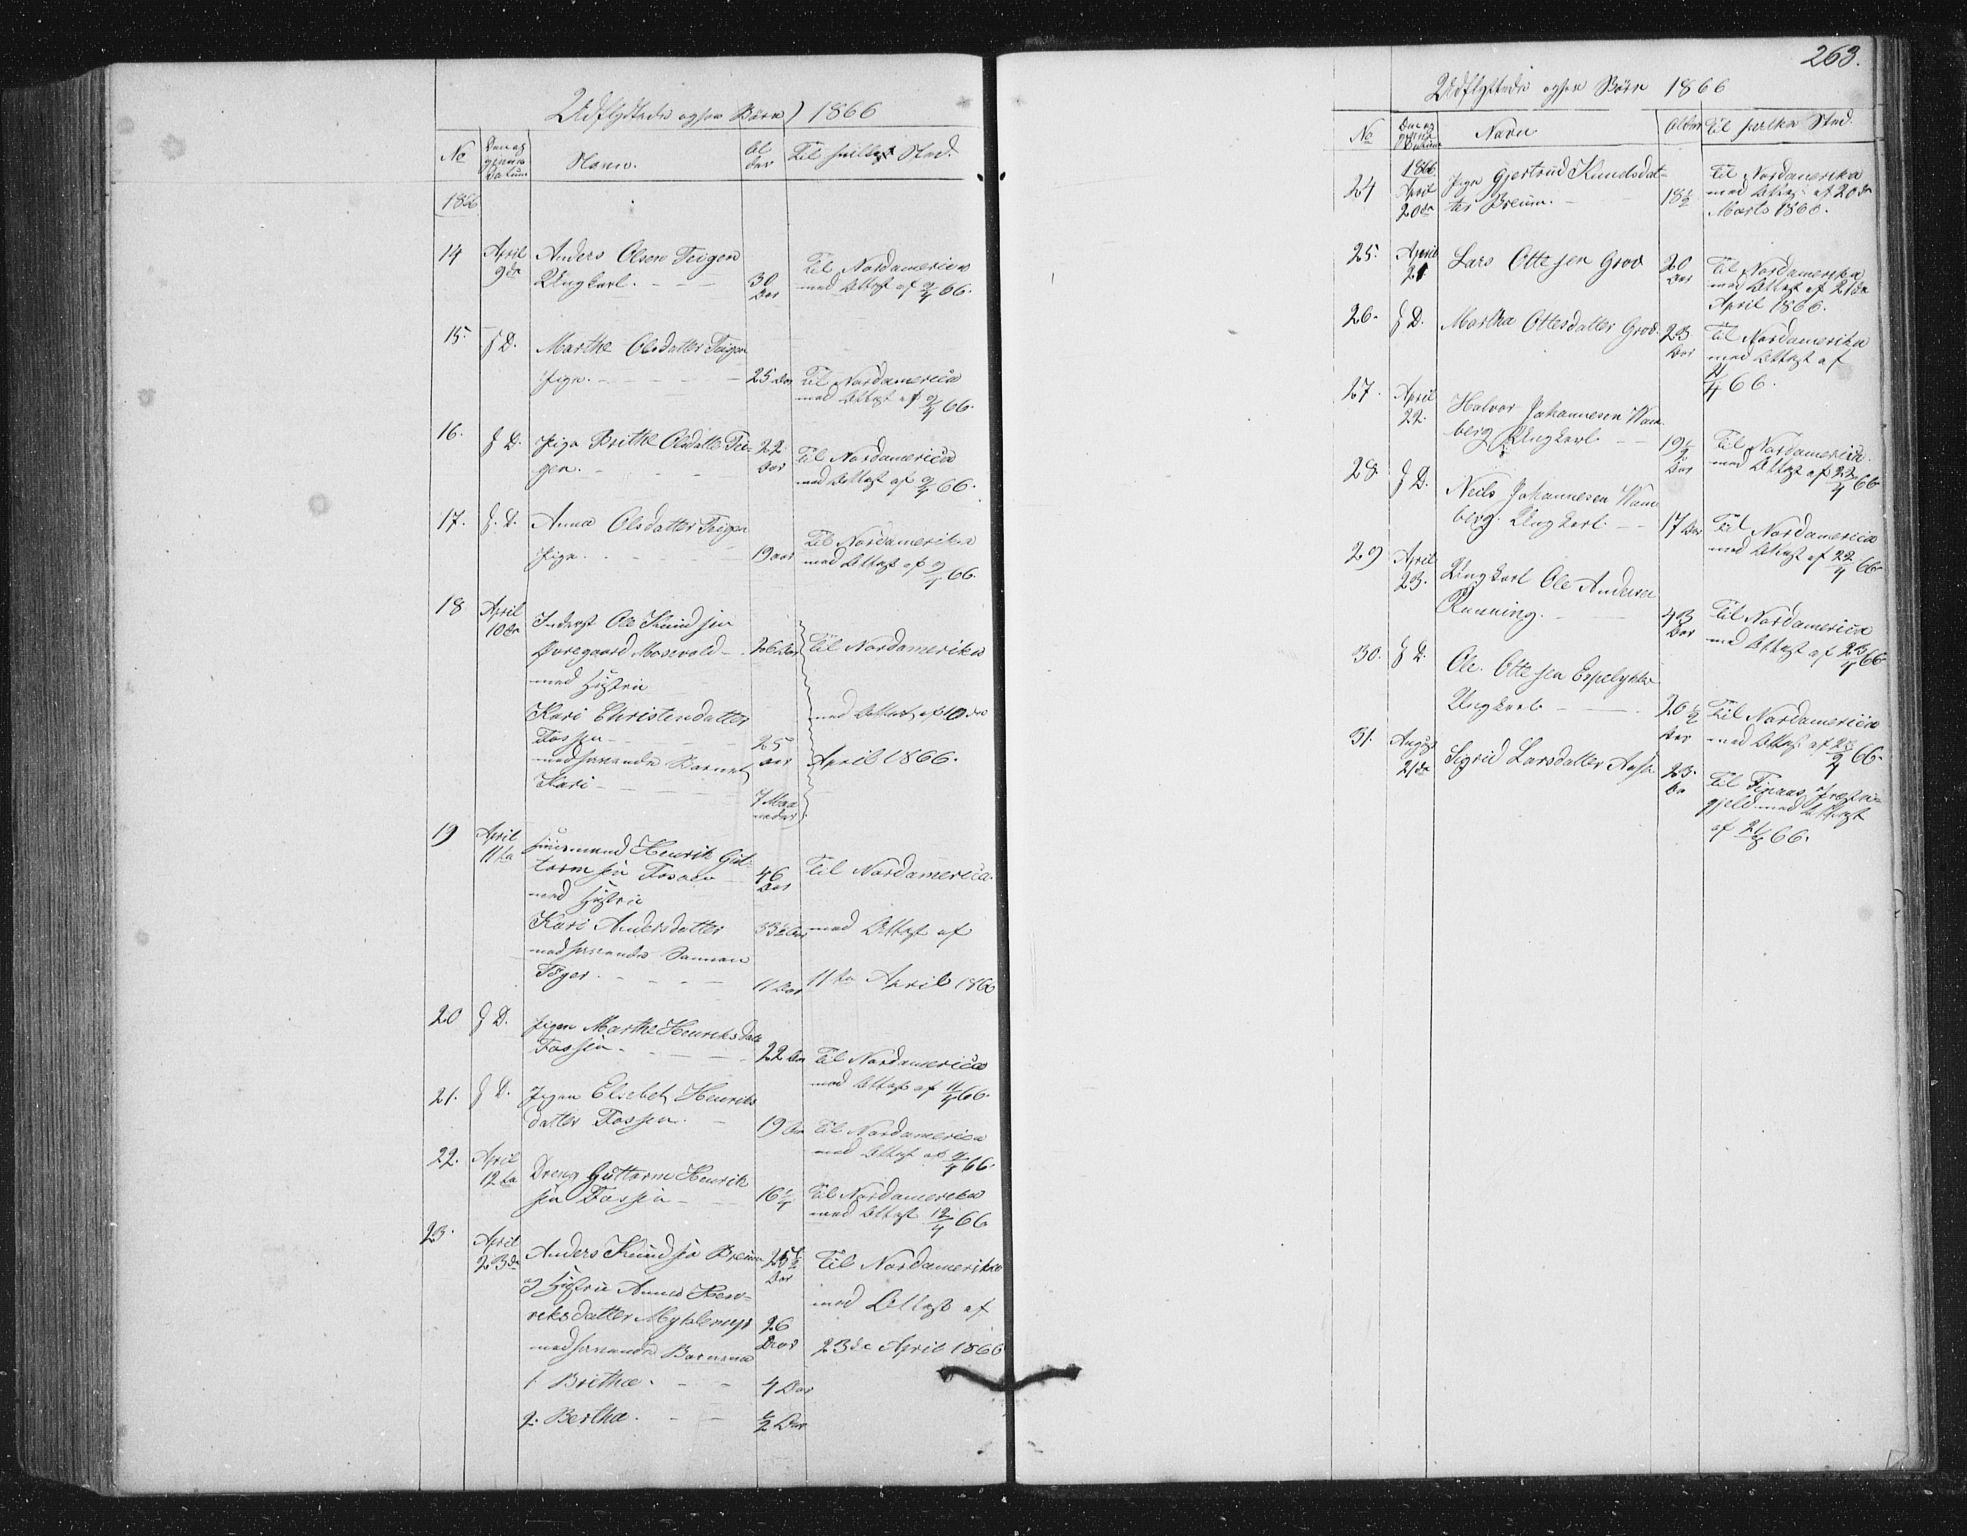 Udflyttede ogsaa Börn) 1866
No
Dag og
Datum
Navn.
Al
der
Til hvilket Sted.
1866
14 April 9de Anders Olsen Teigen
Ungkarl. 30 Aar
Til Nordamerica
med Attest af 9/4 66.
15. J D. Marthe Olsdatter Teigen
Pige. 25 Aar
Til Nordamerica
med Attest af 9/4 66.
16. J D. Pige Brithe Olsdatter Tei-
gen. 22 Aar
Til Nordamerica
med Attest af 9/4 66.
17. J. D. Anna Olsdatter Teigen
Pige. 19 aar
Til Nordamerika
med Attest af 9/4 66.
18 April 10de Inderst Ole Knudsen
Øvregaard Mosevold 26 Aar
Til Nordamerika
med Hustru
Kari Christensdatter
med Attest af 10de
Fossen 25 aar
April 1866.
medhavende Barnet
Kari 7 Maaneder
19 April 11te Huusmand Henrik Gut-
tormsen Fossen 46 Aar
Til Nordamerica.
med Hustru
Kari Andersdatter 33½ Aar
med Attest af
medhavende Sønnen
11 Aar
11te April 1866
20 J D. Pigen Marthe Henriksdatt
Fossen. 22 Aar
Til Nordamerica
med Attest af 11/4 66.
21. J D. Pigen Elsebet Henriks
datter Fossen. 19 Aar
Til Nordamerica
med Attest af 11/4 66.
22. April 12te Dreng Guttorm Henrik
sen Fossen 16¼
Til Nordamerika
med Attest 12/4 66
23. April 23de Anders Knudsen Breum 25½ Aar
Til Nordamerika
og Hustru Anna Hen-
med Attest af
riksdatter Myklemyr 26 Aar
medhavende Børnene
23de April 1866
1 Brithe. 4 Aar
2. Bertha. ½ Aar
263.
Udflyttede ogsaa Börn 1866
No
Navn
Alder
Til hvilke Sted.
24 1866 April 20de Pige Gjertrud Knudsdat-
ter Breum. 18½
Til Nordamerika
med Attest af 20de
Marts 1866.
25. April 21 Lars Ottesen Grov 20 Aar
Til Nordamerika
med Attest af 21de
April 1866.
26. J D. Martha Ottesdatter Grov. 23 Aar
Til Nordamerika
med Attest af
/4 66.
27. April 22. Halvor Johannesen Wam-
berg Ungkarl 19½ Aar
Til Nordamerica.
med Attest af 22/4 66
28 J D. Neils Johannesen Wam
berg. Ungkarl. 17 Aar
Til Nordamerica
med Attest af 22/4 66
29 April 23. Ungkarl Ole Andersen
Rønning. 43 Aar
Til Nordamerica
med Attest af 23/4 66
30. J D. Ole Ottesen Espelykke
Ungkarl 20½ Aar
Til Nordamerica
med Attest af 23/4 66
31. August 21de Sigrid Larsdatter 23 Aa
Til Finaas Præste-
gjeld med Attest
af 21/8 66.